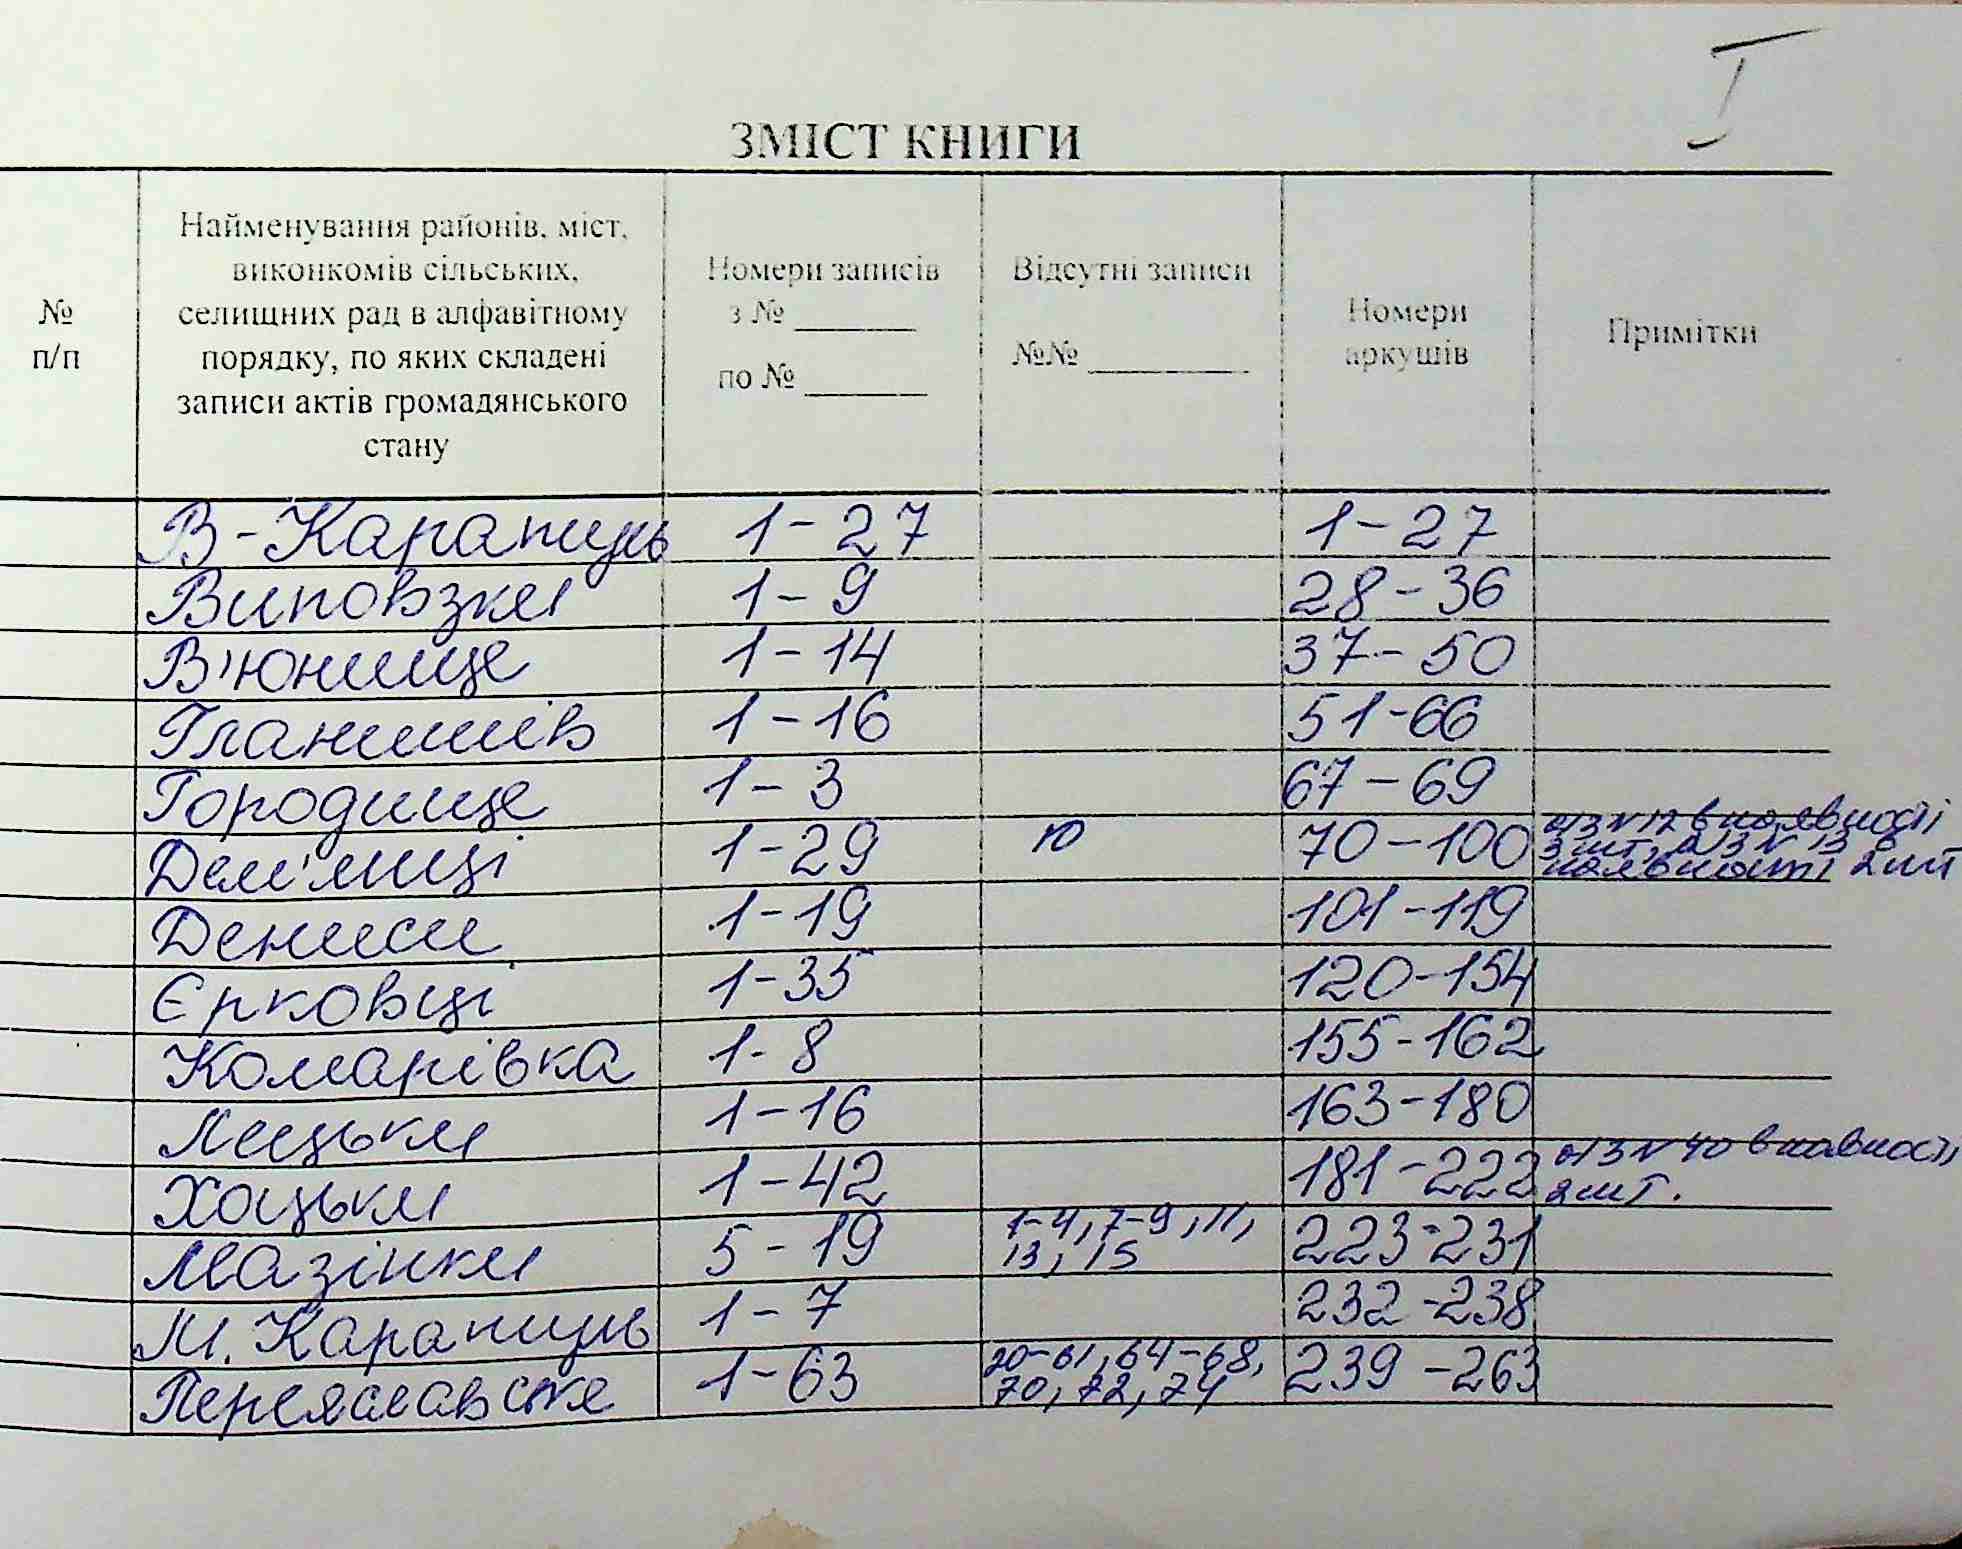 I
ЗМІСТ КНИГИ
№
п/п
Найменування районів, міст,
виконкомів сільських,
селищних рад в алфавітному
порядку, по яких складені
записи актів громадянського
стану
Номери записів
з №
по №
Відсутні записи
№№
Номери
аркушів
Примітки
В-Каратуль 1-27 1-27
Виповзки 1-9 28-36
В'юнище 1-14 37-50
Гланишів 1-16 51-66
Городище 1-3 67-69
Дем'янці 1-29 10 70-100 а/з №12 в наявності
3 шт, а/з № 13 в
наявності 2 шт
Дениси 1-19 101-119
Єрковці 1-35 120-154
Комарівка 1-8 155-162
Лецьки 1-16 163-180
Хоцьки 1-42 181-222 а/з №40 в наявності
2 шт.
Мазінки 5-19 1-4, 7-9, 11,
13, 15 223-231
М. Каратуль 1-7 232-238
Переяславське 1-63 20-61, 64-68,
70, 72, 74 239-263